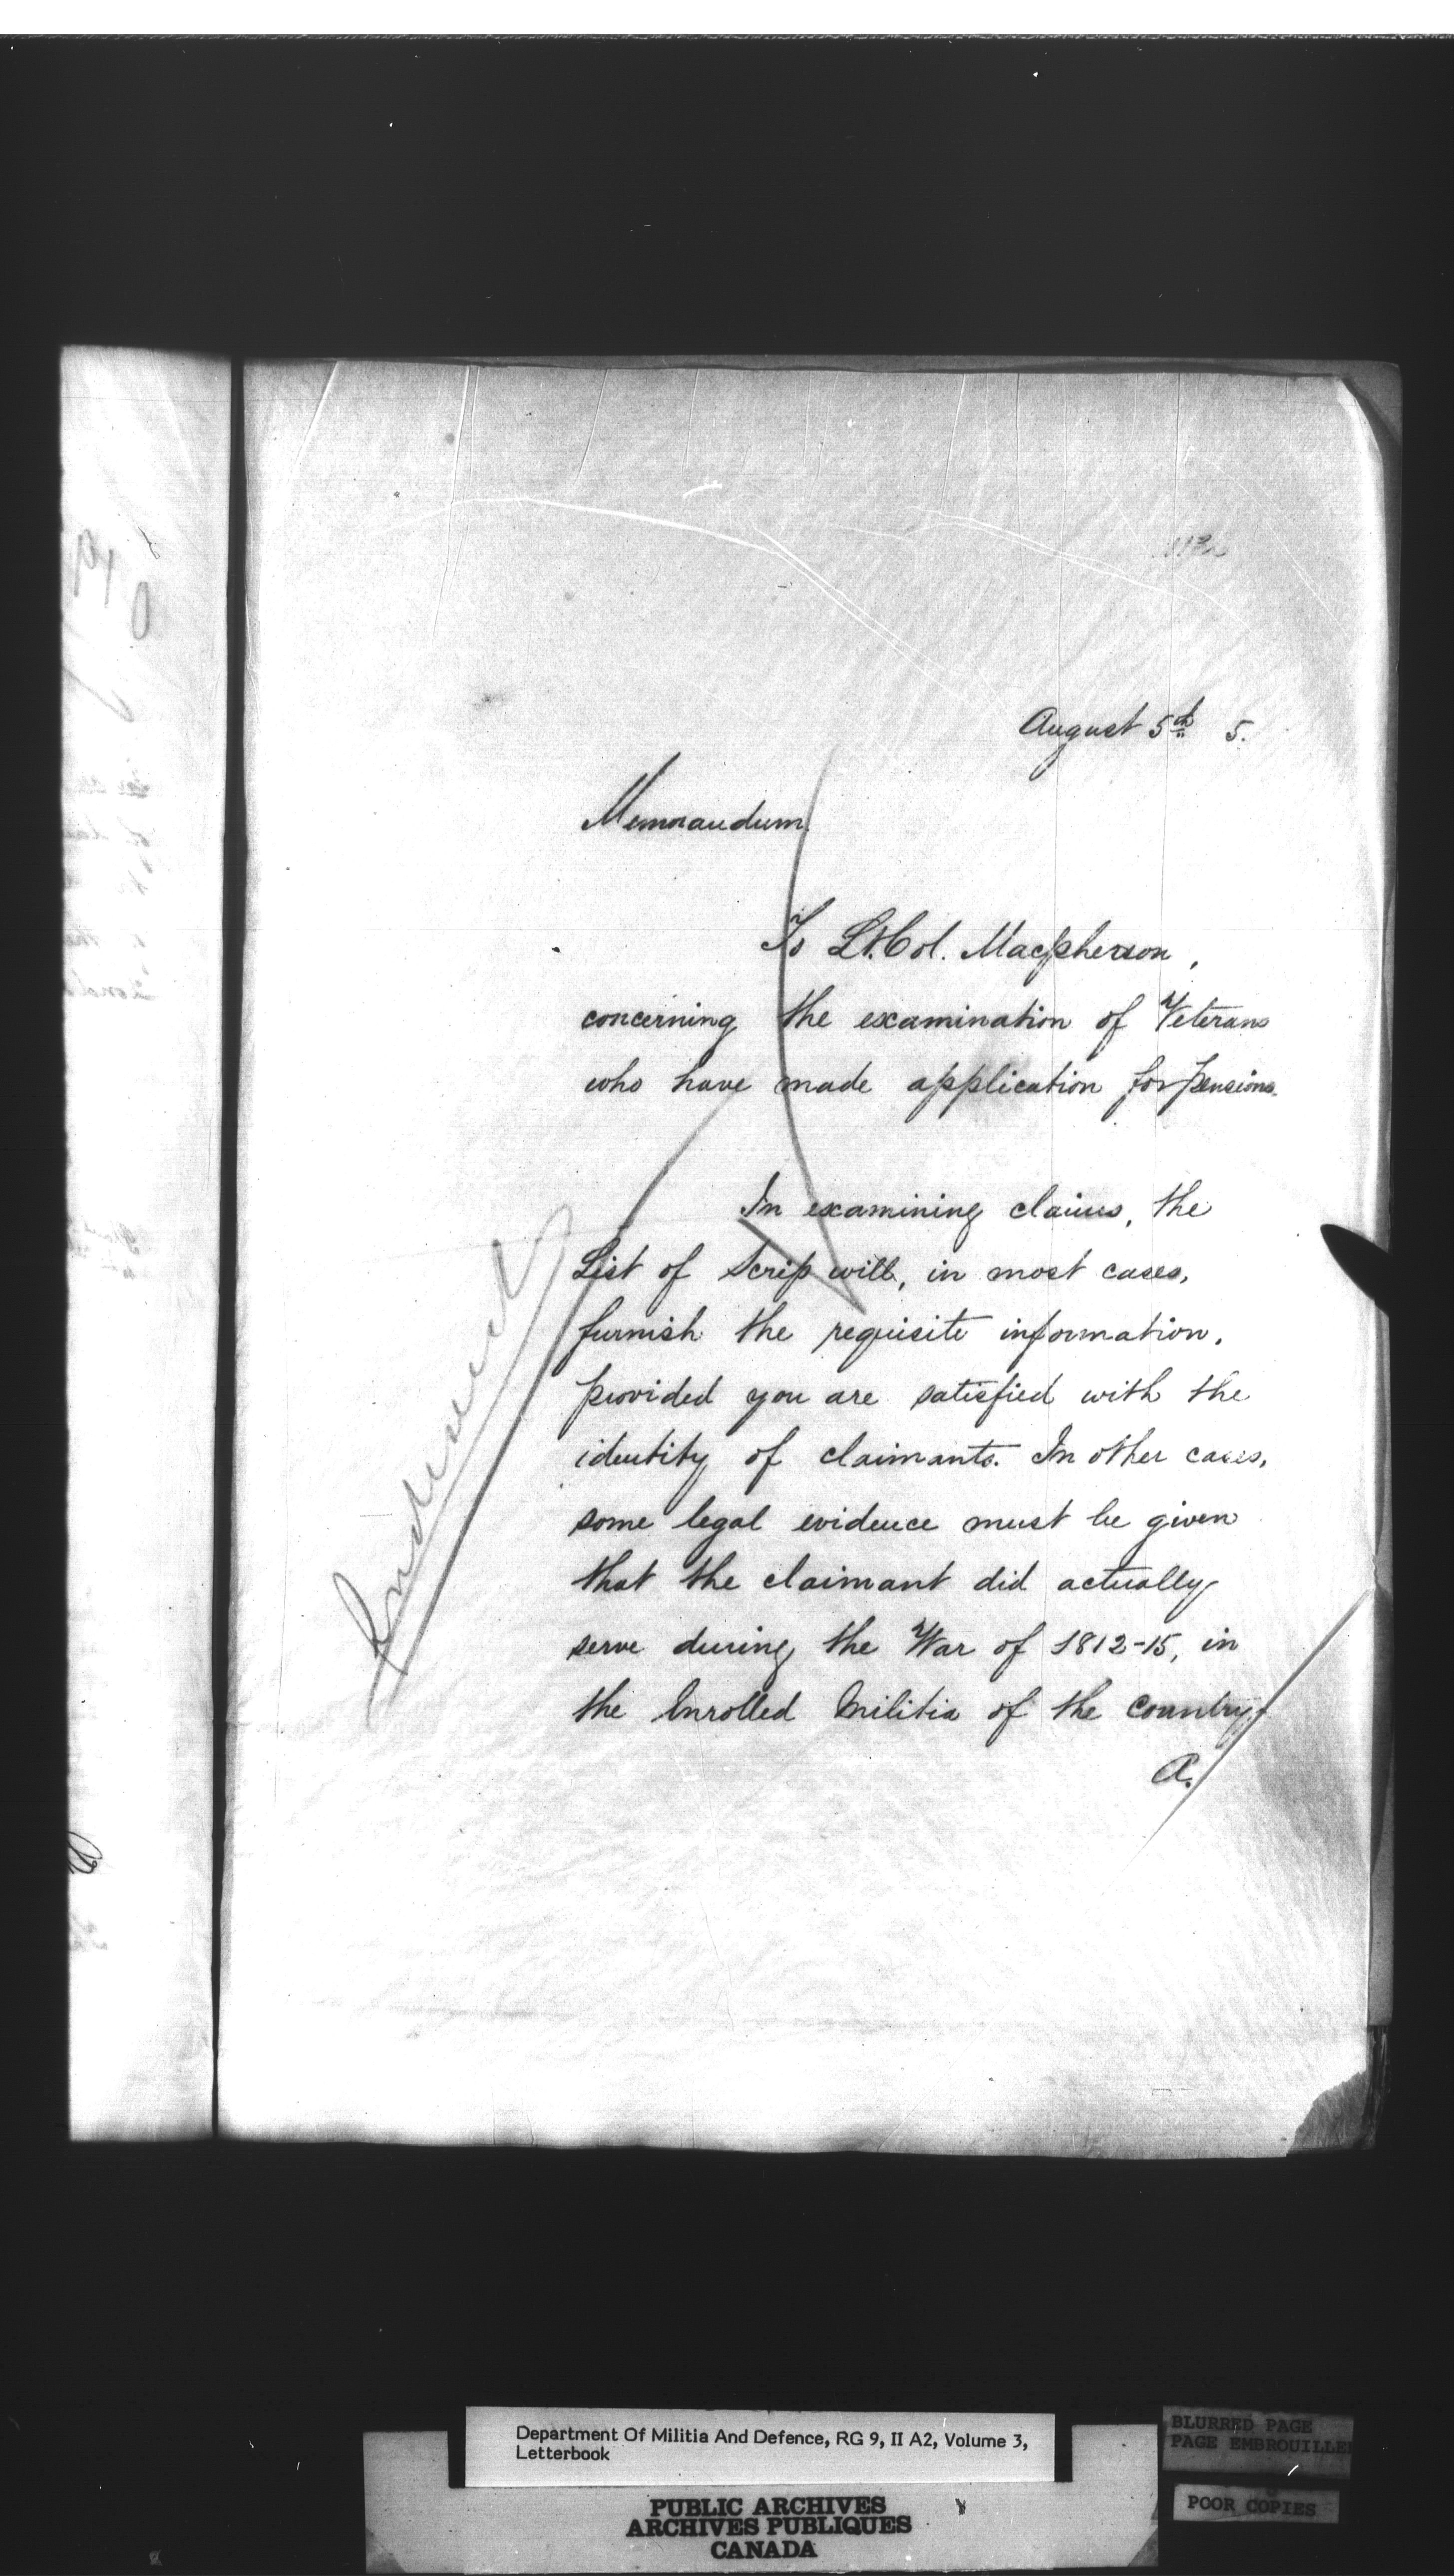 August 5th 5.
Memorandum
To Lt. Col. Macpherson,
concerning the examination of Veterans
who have made application for pensions.
In examining claims, the
List of Scrip will, in most cases,
furnish the requisite information,
provided you are satisfied with the
identity of claimants. In other cases,
some legal evidence must be given
that the claimant did actually
serve during the War of 1812-15, in
the Enrolled Militia of the Country.
A.
Department Of Militia And Defence, RG 9, II A2, Volume 3,
Letterbook
PUBLIC ARCHIVES
ARCHIVES PUBLIQUES
CANADA
BLURRED PAGE
PAGE EMBROUILLE
POOR COPIES